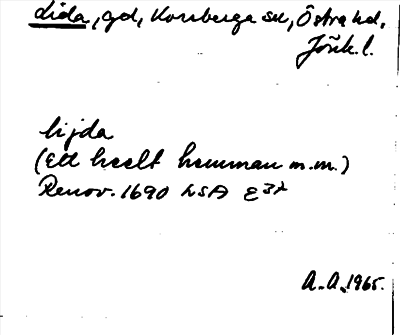 Lida, gd, Korsberga sn, Östra hd,
Jönk. l.
Lijda
(Ett heelt hemman m.m.)
Renov. 1690 LSA E 32
A.A. 1965.